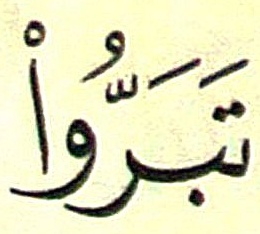 تَبَرُّوا۟